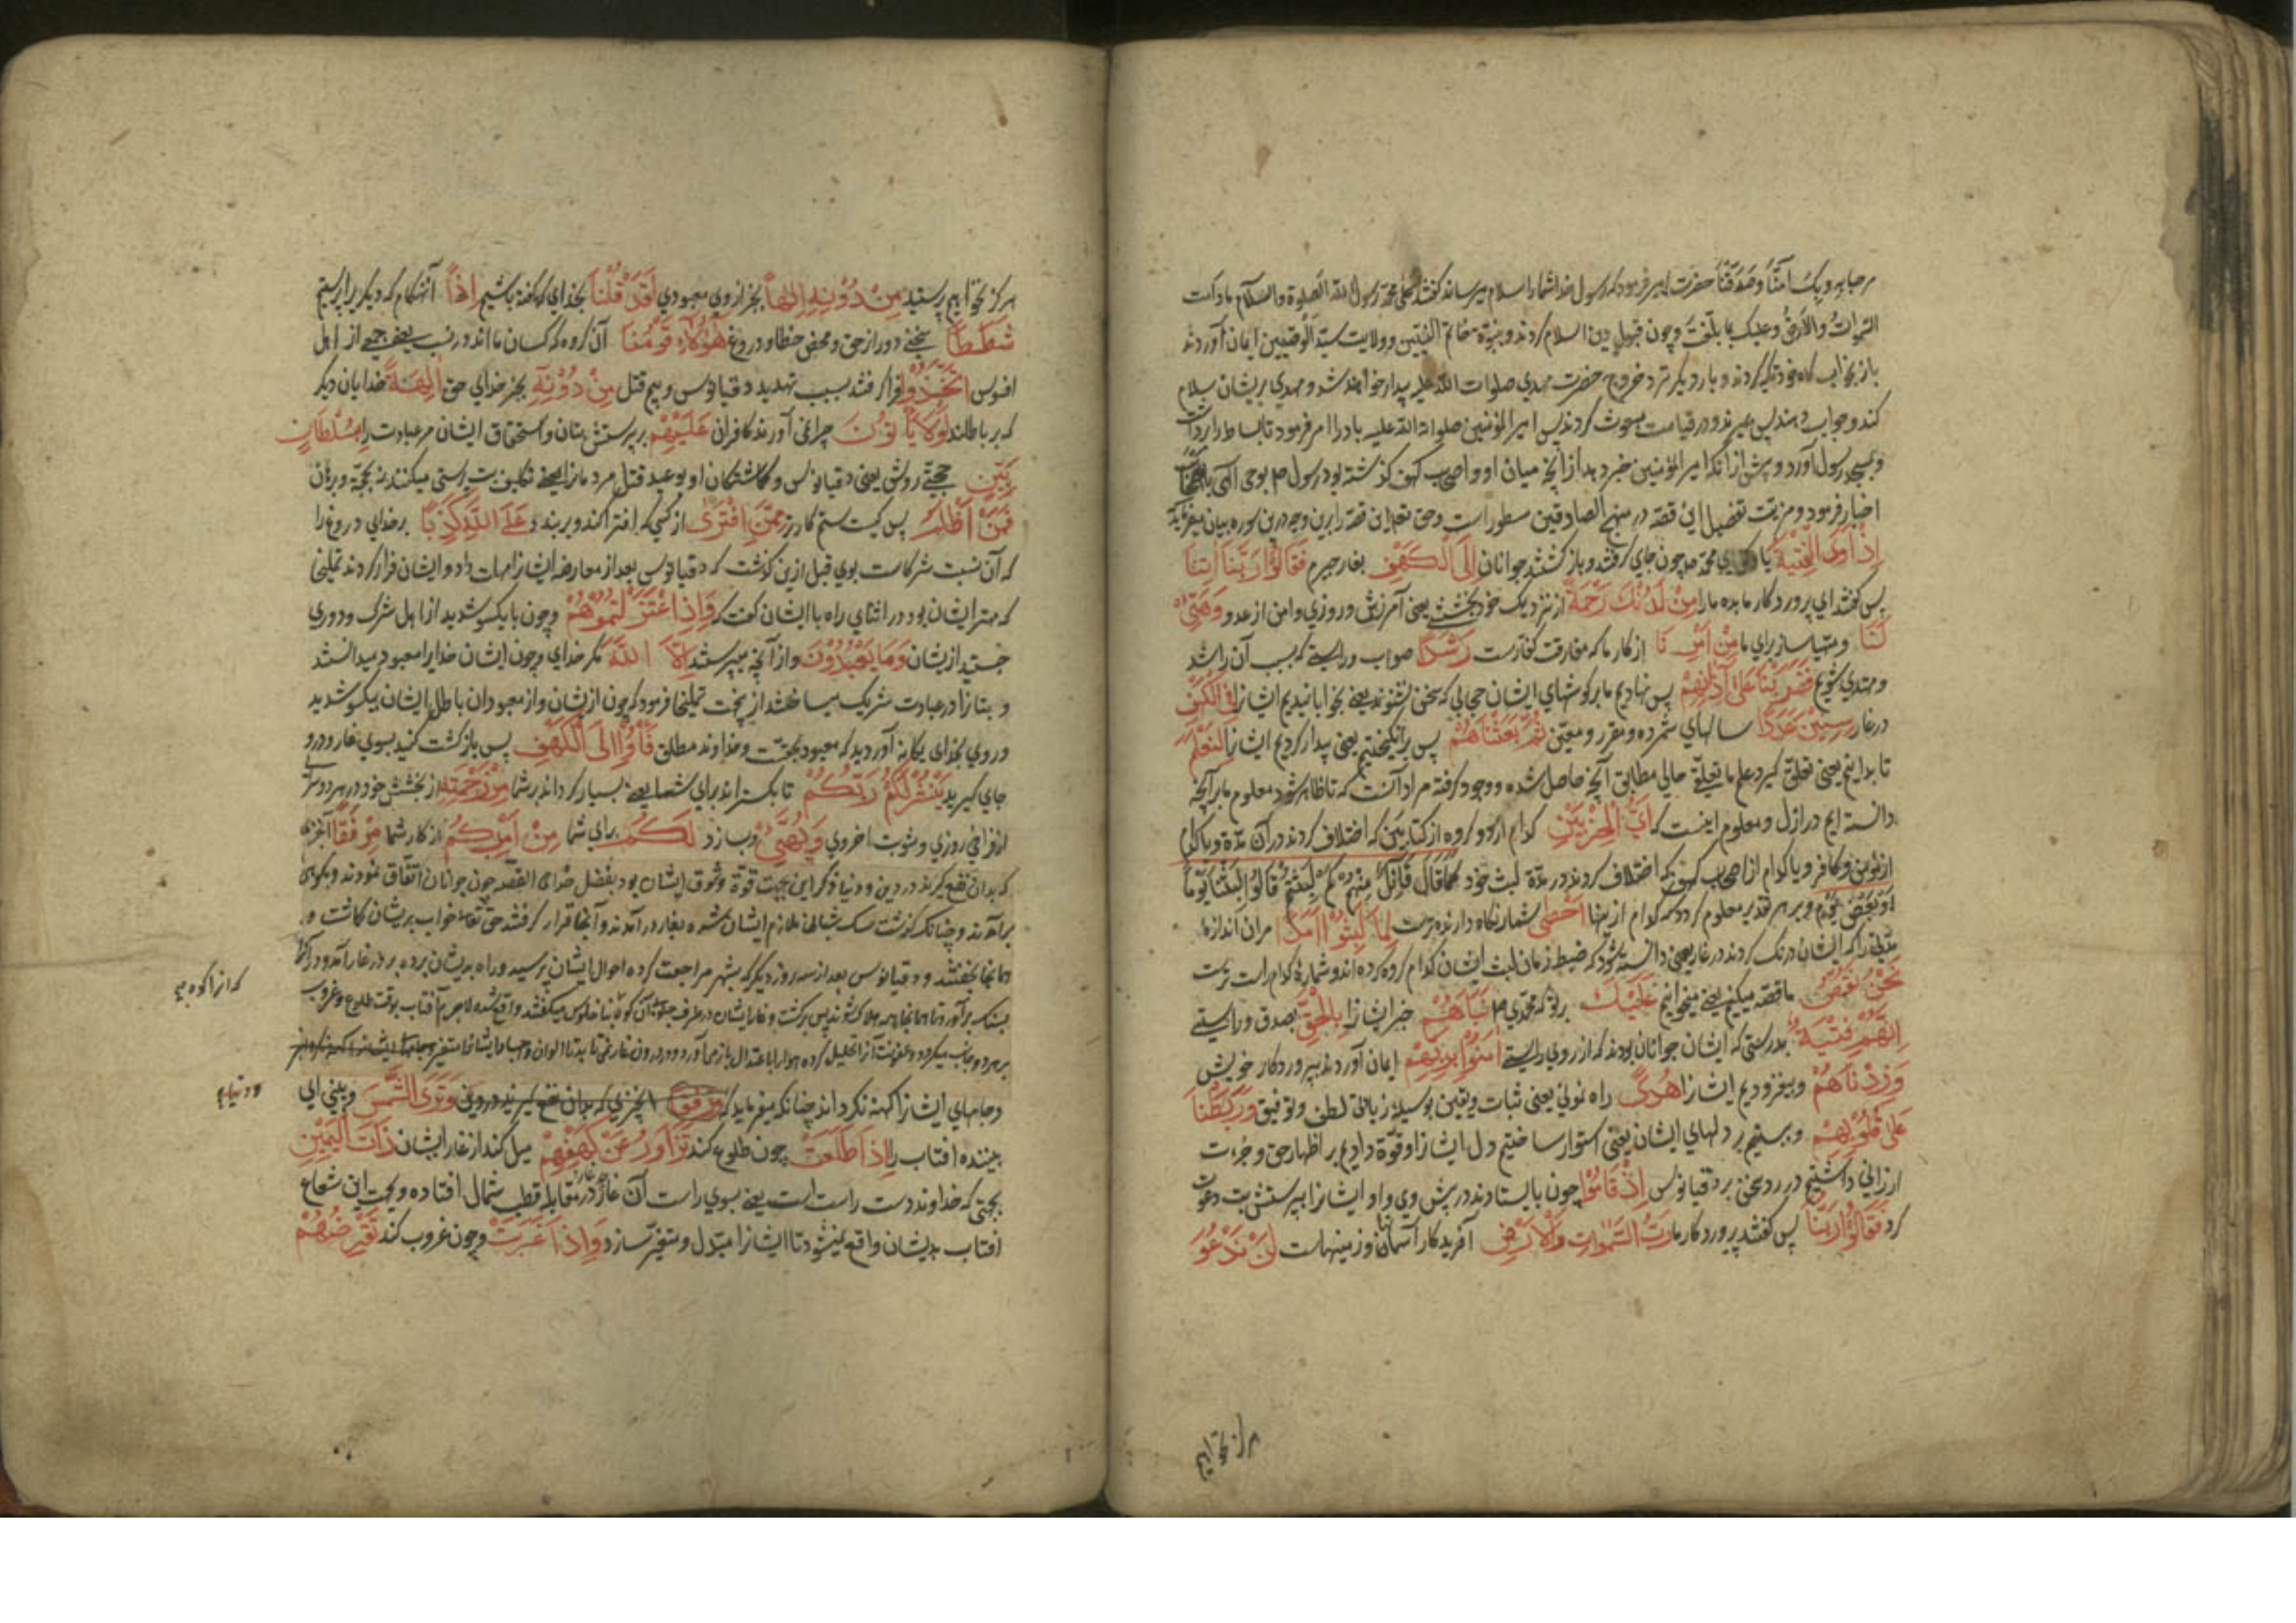 مرحبا بربک آمنّا و صدّقنا حضرت امیر فرمود که رسول خدا شما را سلام میرساند گفتند علی محمد رسول الله الصلوة والسلام ما دامت
السموات والارض وعلیک بما بلّغت و چون قبول دین اسلام کردند و بنبوّة خاتم النبیین و ولایت سیّد الوصیین ایمان آوردند
باز بخوابگاه خود تکیه کردند و بار دیگر نزد خروج حضرت مهدی صلوات الله علیه بیدار خواهند شد و مهدی بریشان سلام
کند و جواب دهند پس بمیرند و در قیامت مبعوث گردند پس امیر المؤمنین صلوات الله علیه باد را امر فرمود تا بساط را برداشت
و بمسجد رسول آورد و پیش از آنکه امیر المؤمنین خبر دهد از آنچه میان او و اصحاب کهف گذشته بود رسول ص بوحی الهی
اخبار فرمود و تفصیل این قصه در منهج الصادقین مسطور است و حق تعالی این قصه را برین وجه درین سوره بیان میفرماید
اِذْ اَوَی الْفِتْیَةُ یاد کن ای محمد ص چون جای گرفتند و بازگشتند جوانان اِلَی الْکَهْفِ بغار جیرم فَقَالُوْا رَبَّنَا اٰتِنَا
پس گفتند ای پروردگار ما بده ما را مِنْ لَدُنْكَ رَحْمَةً از نزدیک خود بخششی یعنی آمرزش و روزی و امن از عدو وَهَیِّئْ
لَنَا و مهیا ساز برای ما مِنْ اَمْرِنَا از کار ما که مفارقت کفارست رَشَدًا صواب و راستی که بسبب آن راشد
و مهتدی شویم فَضَرَبْنَا عَلٰی اٰذَانِهِمْ پس نهادیم ما بر گوشهای ایشان حجابی که سخن نشنوند یعنی بخوابانیدیم ایشانرا فِی الْکَهْفِ
در غار سِنِیْنَ عَدَدًا سالهای شمرده و مقرر و معین ثُمَّ بَعَثْنَاهُمْ پس برانگیختیم یعنی بیدار کردیم ایشانرا لِنَعْلَمَ
تا بدانیم یعنی تعلق گیرد علم ما تعلق حالی مطابق آنچه حاصل شده و وجود گرفته مراد آنست که تا ظاهر شود معلوم ما بر آنچه
دانسته ایم در ازل و معلوم اینست که اَیُّ الْحِزْبَیْنِ کدام از دو گروه از کتابیین که اختلاف کردند در آن مدة و یا کدام
از مؤمن و کافر و یا کدام از اصحاب کهف که اختلاف کردند در مدة لبث خود کما قال قَالَ قَائِلٌ مِنْهُمْ کَمْ لَبِثْتُمْ قَالُوْا لَبِثْنَا یَوْمًا
اَوْ بَعْضَ یَوْمٍ و بر هر تقدیر معلوم گردد که کدام ازینها اَحْصٰی شمار نگاه دارنده ترست لِمَا لَبِثُوْا اَمَدًا مر آن اندازه
مدتی را که ایشان درنگ کردند در غار یعنی دانسته شود که ضبط زمان لبث ایشان کدام گروه کرده اند و شماره کدام راست ترست
نَحْنُ نَقُصُّ ما قصه میکنیم یعنی میخوانیم عَلَیْكَ بر تو که محمدی ص نَبَاَهُمْ خبر ایشانرا بِالْحَقِّ بصدق و راستی
اِنَّهُمْ فِتْیَةٌ بدرستی که ایشان جوانان بودند که از روی راستی اٰمَنُوْا بِرَبِّهِمْ ایمان آوردند بپروردگار خویش
وَزِدْنَاهُمْ و بیفزودیم ایشانرا هُدًی راه نمونی یعنی ثبات و یقین بوسیله زیادتی لطف و توفیق وَرَبَطْنَا
عَلٰی قُلُوْبِهِمْ و ببستیم بر دلهای ایشان یعنی استوار ساختیم دل ایشانرا و قوّة دادیم بر اظهار حق و جرءت
ارزانی داشتیم در رد سخن بر دقیانوس اِذْ قَامُوْا چون بایستادند در پیش وی و او ایشانرا بپرستش بت دعوت
کرد فَقَالُوْا رَبُّنَا پس گفتند پروردگار ما رَبُّ السَّمٰوَاتِ وَالْاَرْضِ آفریدگار آسمانها و زمینهاست لَنْ نَدْعُوَ
هرگز نخوانیم
هرگز نخوانیم و نپرستیم مِنْ دُوْنِهِ اِلٰهًا بجز از وی معبودی لَقَدْ قُلْنَا بخدای که گفته باشیم اِذًا آنهنگام که دیگریرا پرستیم
شَطَطًا سخنی دور از حق و محض خطا و دروغ هٰؤُلَاءِ قَوْمُنَا آن گروه که کسان ما اند در نسب یعنی جمعی از اهل
افسوس اتَّخَذُوْا فرا گرفتند بسبب تهدید دقیانوس و بیم قتل مِنْ دُوْنِهٖ بجز خدای حق اٰلِهَةً خدایان دیگر
که بر باطلند لَوْلَا یَاْتُوْنَ چرا نمی آورند کافران عَلَیْهِمْ بر پرستش بتان و استحقاق ایشان مر عبادت را بِسُلْطَانٍ
بَیِّنٍ حجتی روشن یعنی دقیانوس و گماشتگان او بوعید قتل مردمانرا تکلیف بت پرستی میکنند نه بحجّة و برهان
فَمَنْ اَظْلَمُ پس کیست ستمکارتر مِمَّنِ افْتَرٰی از کسی که افترا کند و بربندد عَلَی اللّٰهِ کَذِبًا بر خدای دروغ را
که آن نسبت شرکاست بوی قبل ازین گذشت که دقیانوس بعد از معارضه ایشانرا مهلت داد و ایشان فرار کردند تملیخا
که مهتر ایشان بود در اثنای راه با ایشان گفت که وَاِذِ اعْتَزَلْتُمُوْهُمْ و چون با یکسو شدید از اهل شرک و دوری
جستید ازیشان وَمَا یَعْبُدُوْنَ و از آنچه میپرستند اِلَّا اللّٰهَ مگر خدای و چون ایشان خدایرا معبود میدانستند
و بتانرا در عبادت شریک میساختند از این جهت تملیخا فرمود که چون ازیشان و از معبودان باطل ایشان بیکسو شدید
و روی بخدای یگانه آوردید که معبود بحقّست و خداوند مطلق فَاْوٗا اِلَی الْکَهْفِ پس بازگشت کنید بسوی غار و درو
جای گیرید یَنْشُرْ لَکُمْ رَبُّکُمْ تا بگستراند برای شما یعنی بسیار گرداند بر شما مِنْ رَحْمَتِهٖ از بخشش خود در هر دو سرا
از فراخی روزی و مثوبت اخروی وَیُهَیِّئْ و بسازد لَکُمْ برای شما مِنْ اَمْرِکُمْ از کار شما مِرْفَقًا آنچیزی
که بدان نفع گیرند در دین و دنیا ذکر این بجهت قوّة وثوق ایشان بود بفضل خدای القصه چون جوانان اتّفاق نمودند و بکوه
برآمدند و چنانکه گذشت سگ شبان ملازم ایشان شده بغار درآمدند و آنجا قرار گرفتند حق تعالی خواب بریشان گماشت و
همانجا بخفتند و دقیانوس بعد از سه روز دیگر که بشهر مراجعت کرده احوال ایشان پرسید و راه بدیشان برده بر در غار آمد و در آنرا
بسنگ برآورد تا همانجا همه هلاک شوند پس برگشت و غار ایشان در طرف جنوب آن کوه که بناخلوس میگفتند واقع شده لاجرم آفتاب بوقت طلوع و غروب
بر هر دو جانب میگردد و عفونت آنرا تحلیل کرده هوا را باعتدال باز می آورد و درون غار نمی تابد تا الوان و اجساد ایشانرا متغیر
و جامهای ایشانرا کهنه نگرداند چنانکه میفرماید که وَتَرَی الشَّمْسَ و بینی ای
بیننده افتاب را اِذَا طَلَعَتْ چون طلوع کند تَزَاوَرُ عَنْ کَهْفِهِمْ میل کند از غار ایشان ذَاتَ الْیَمِیْنِ
بجهتی که خداوند دست راست است یعنی بسوی راست آن غار در مقابله قطب شمال افتاده و بجهت این شعاع
افتاب بدیشان واقع نمیشود تا ایشانرا مبدّل و متغیر سازد وَاِذَا غَرَبَتْ و چون غروب کند تَقْرِضُهُمْ